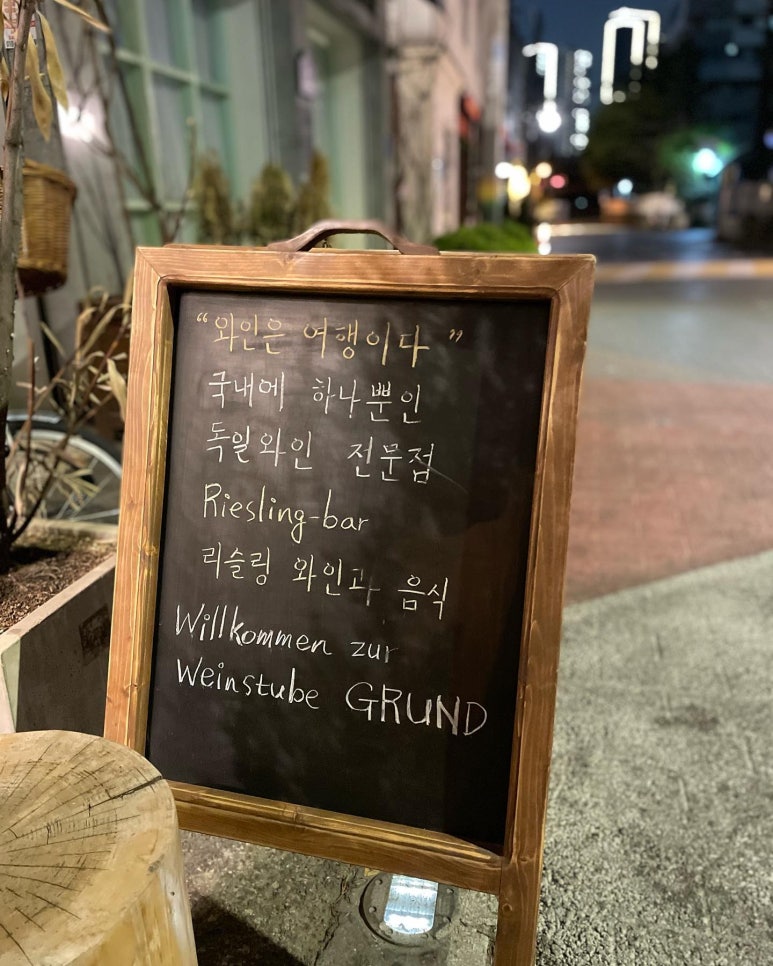 “와인은 여행이다”
국내에 하나뿐인
독일와인 전문점
Riesling-bar
리슬링 와인과 음식
Willkommen zur
Weinstube GRUND